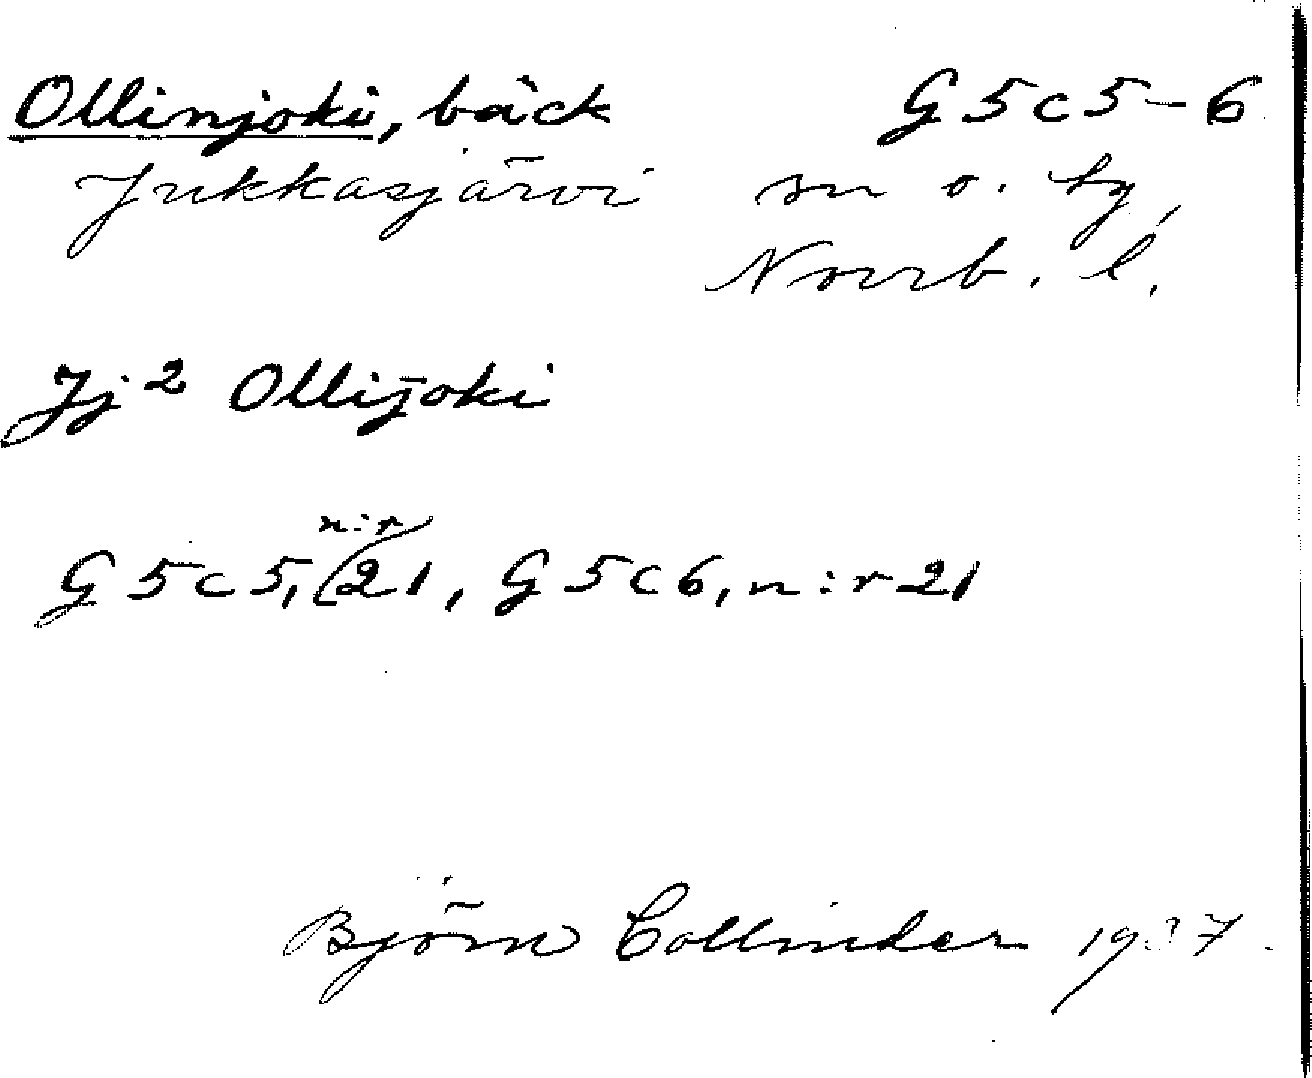 Ollinjoki, bäck G 5 c 5-6
Jukkasjärvi sn o. tg,
Norrb. l.
Jj 2 Ollijoki
n:r
G 5 c 5, 21, G 5 c 6, n:r 21
Björn Collinder